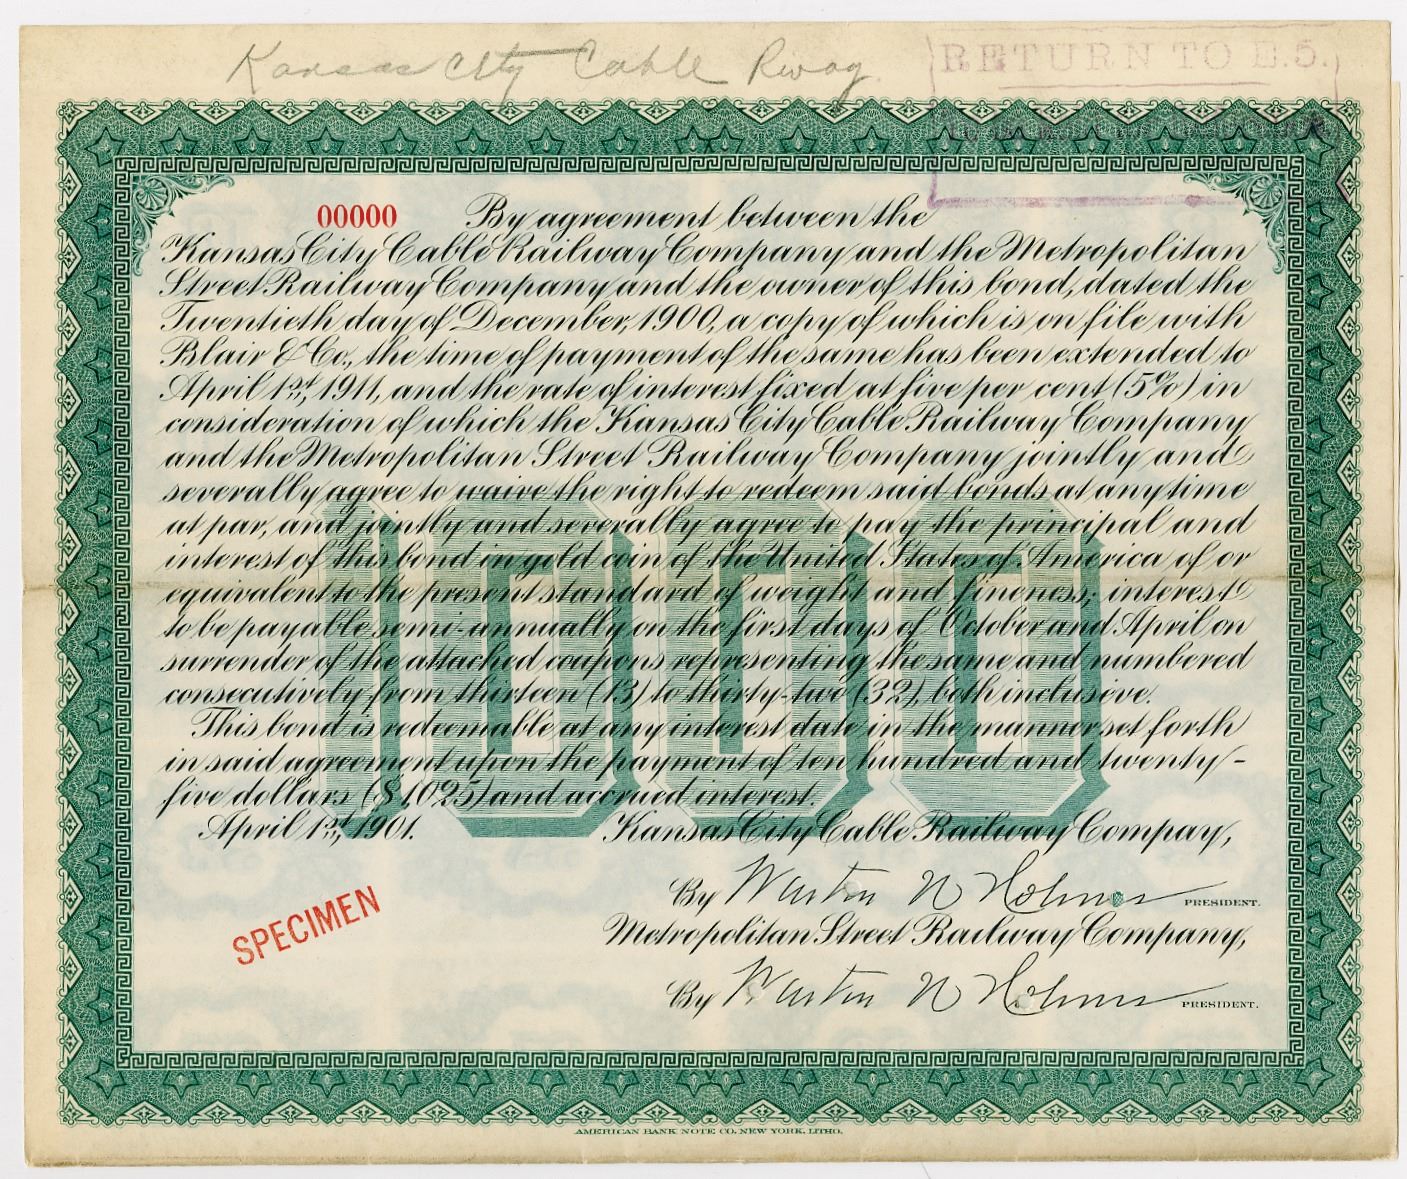 Kansas City Cable Rway
RETURN TO E.5.
00000 By agreement between the
Kansas City Cable Railway Company and the Metropolitan
Street Railway Company and the owner of this bond, dated the
Twentieth day of December, 1900, a copy of which is on file with
Blair & Co., the time of payment of the same has been extended to
April 1st, 1911, and the rate of interest fixed at five per cent (5%) in
consideration of which the Kansas City Cable Railway Company
and the Metropolitan Street Railway Company jointly and
severally agree to waive the right to redeem said bonds at any time
at par, and jointly and severally agree to pay the principal and
interest of this bond in gold coin of the United States of America of or
equivalent to the present standard of weight and fineness; interest
to be payable semi-annually on the first days of October and April on
surrender of the attached coupons representing the same and numbered
consecutively from thirteen (13) to thirty-two (32), both inclusive.
This bond is redeemable at any interest date in the manner set forth
in said agreement upon the payment of ten hundred and twenty-
five dollars ($1,025) and accrued interest.
1000
April 1st, 1901. Kansas City Cable Railway Compay,
By Walton H Holmes PRESIDENT.
SPECIMEN
Metropolitan Street Railway Company,
By Walton H Holmes PRESIDENT.
AMERICAN BANK NOTE CO. NEW YORK. LITHO.